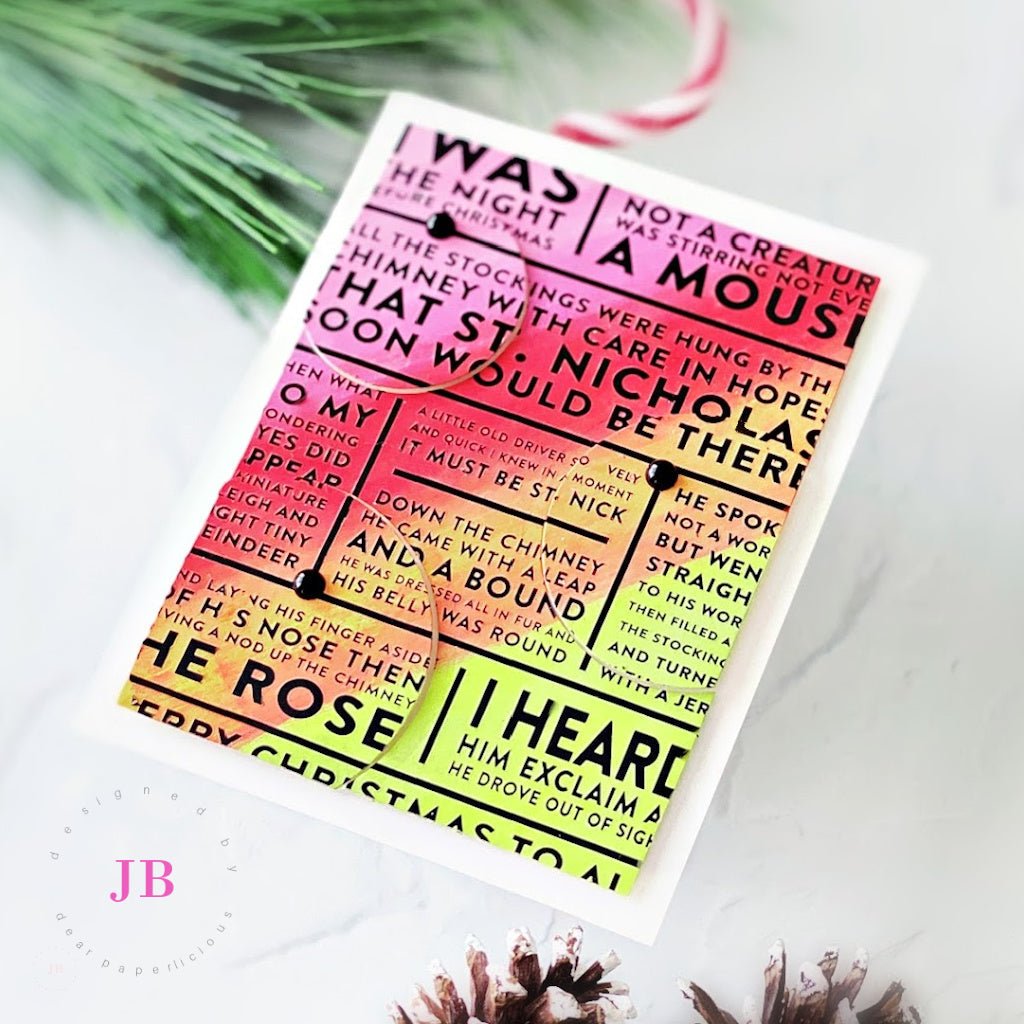 I WAS
HE NIGHT
EFORE CHRISTMAS
NOT A CREATUR
WAS STIRRING NOT EVE
A MOUSE
ALL THE STOCKINGS WERE HUNG BY TH
CHIMNEY WITH CARE IN HOPES
THAT ST. NICHOLAS
SOON WOULD BE THERE
HEN WHAT
O MY
ONDERING
YES DID
APPEAR
MINIATURE
LEIGH AND
IGHT TINY
EINDEER
A LITTLE OLD DRIVER SO VELY
AND QUICK I KNEW IN A MOMENT
IT MUST BE ST. NICK
DOWN THE CHIMNEY
HE CAME WITH A LEAP
AND A BOUND
HE WAS DRESSED ALL IN FUR AND
HIS BELLY WAS ROUND
HE SPOK
NOT A WOR
BUT WEN
STRAIGH
TO HIS WOR
THEN FILLED A
THE STOCKING
AND TURNE
WITH A JER
AND LAYING HIS FINGER ASIDE
OF HIS NOSE THEN
VING A NOD UP THE CHIMNEY
HE ROSE
I HEARD
HIM EXCLAIM A
HE DROVE OUT OF SIGH
ERRY CHRISTMAS TO AL
designed by
JB
dear paperlicious
JB